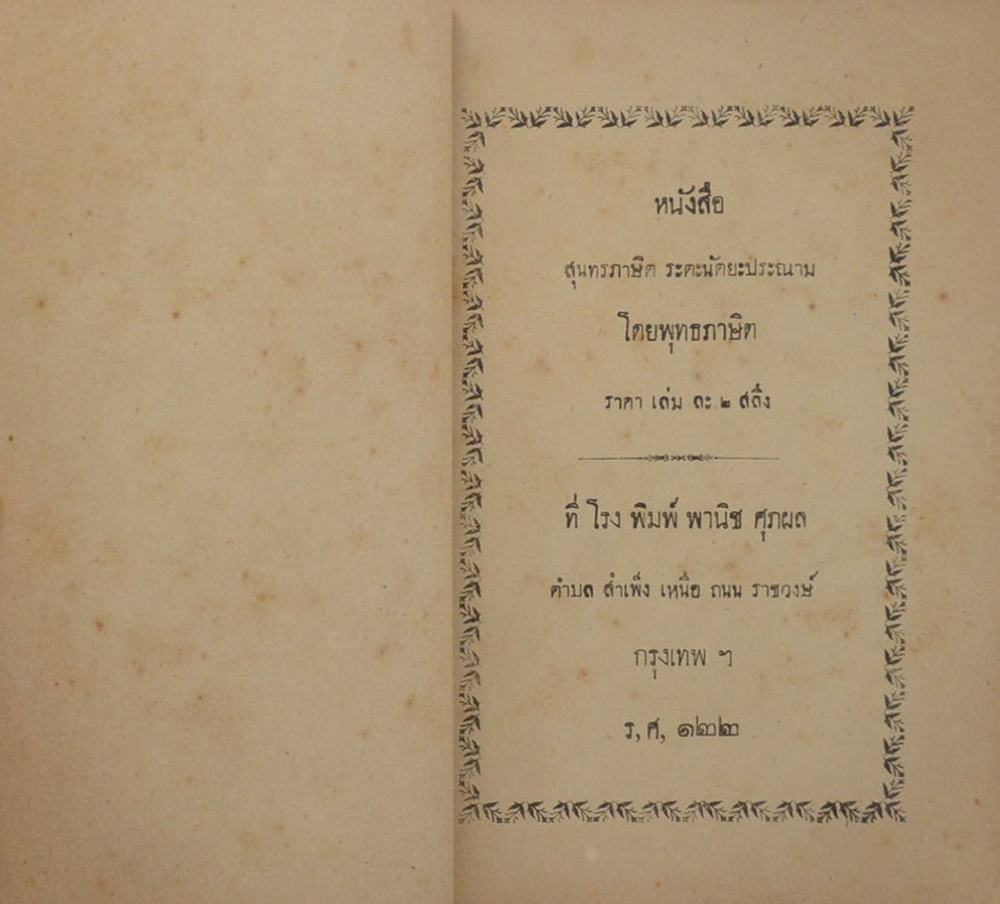 หนังสือ
สุนทรภาษิต ระตะนัตยะประณาม
โดยพุทธภาษิต
ราคา เล่ม ละ ๒ สลึง
ที่ โรง พิมพ์ พานิช ศุภผล
ตำบล สำเพ็ง เหนือ ถนน ราชวงษ์
กรุงเทพ ฯ
ร, ศ, ๑๒๒